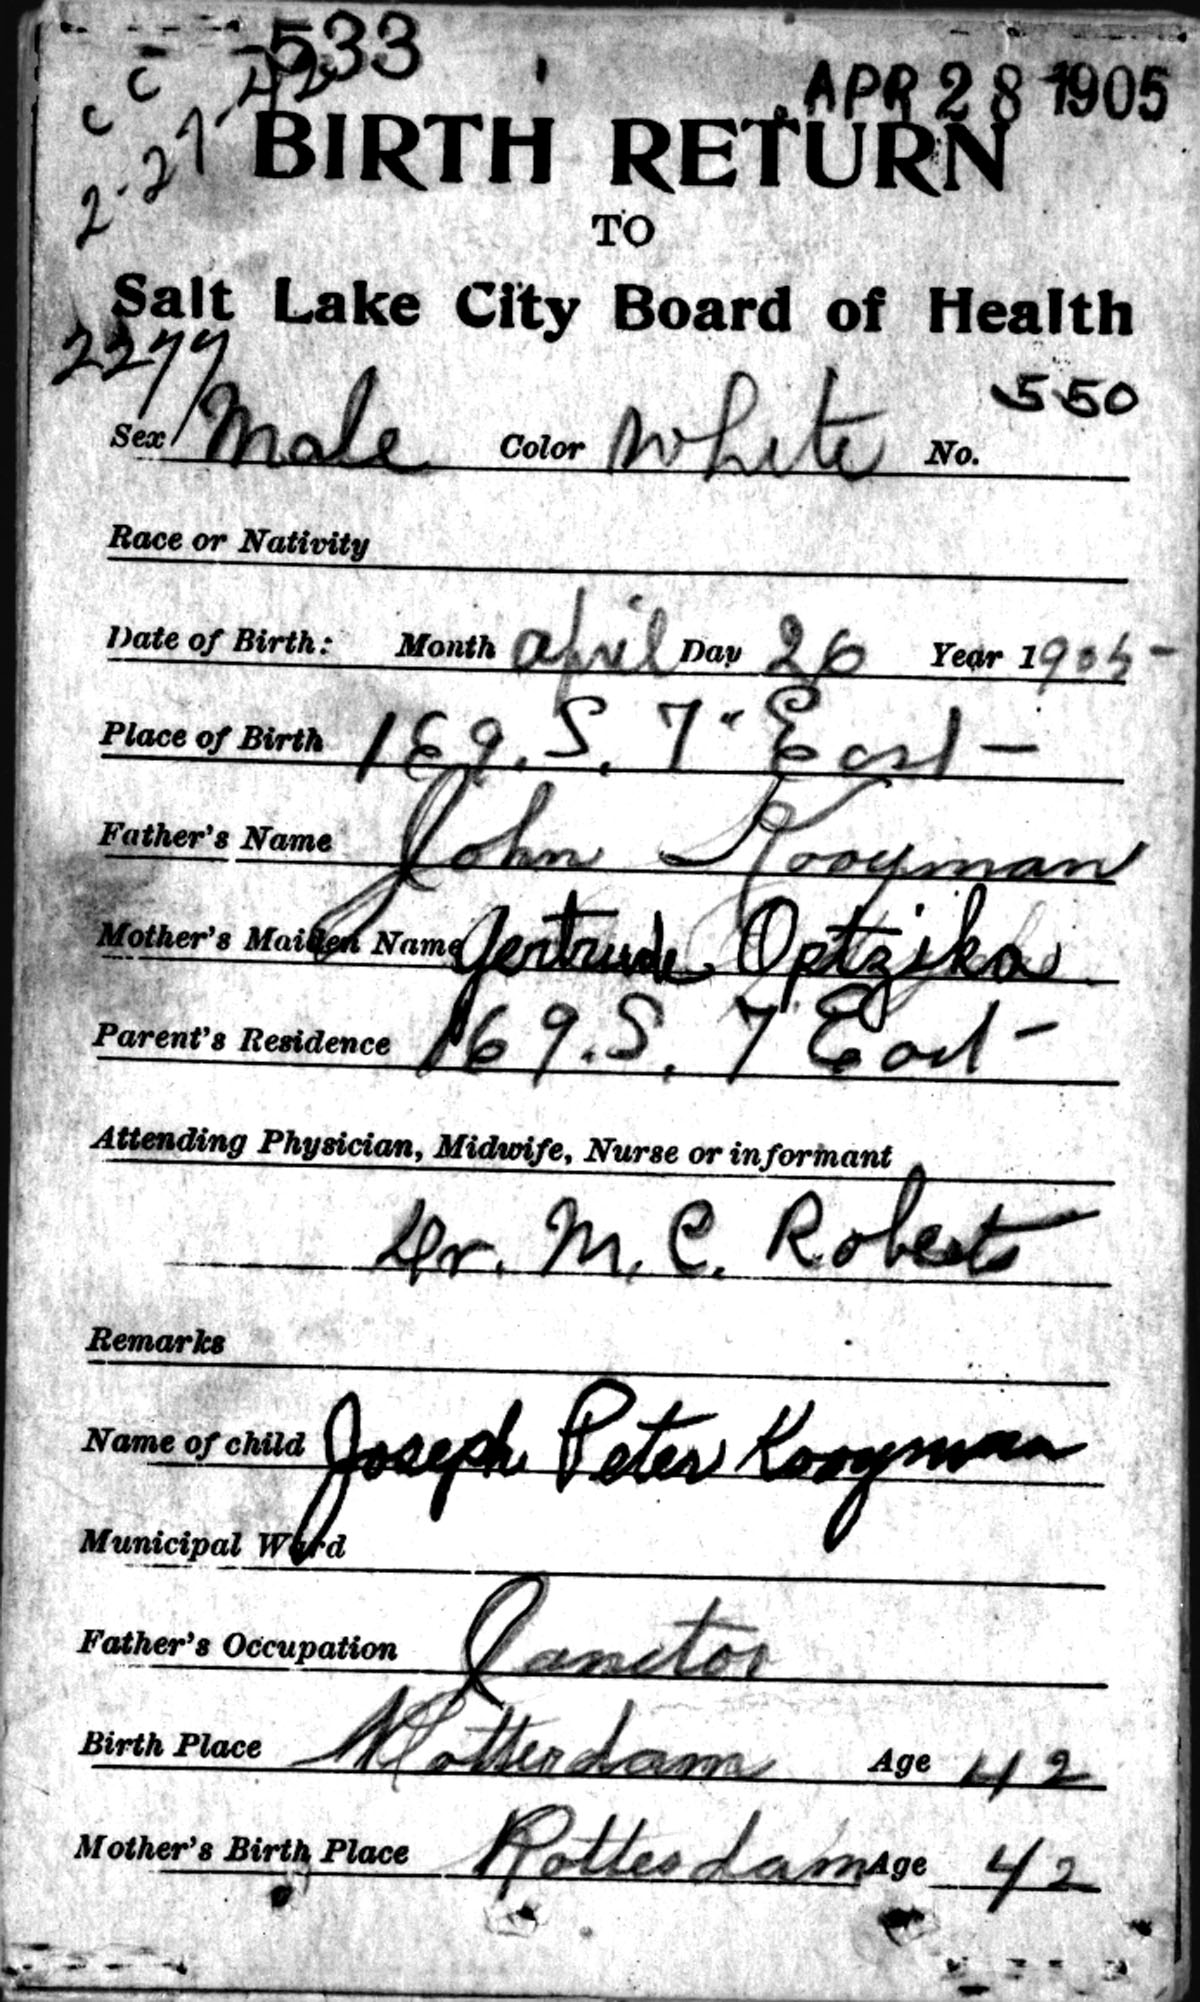 533
APR 28 1905
C C
2-27-42
BIRTH RETURN
TO
Salt Lake City Board of Health
2277
550
Sex Male Color White No.
Race or Nativity
Date of Birth: Month April Day 26 Year 1905
Place of Birth 169. S. 7" East
Father's Name John Kooyman
Mother's Maiden Name Gertrude Optzijka
Parent's Residence 169. S. 7 East
Attending Physician, Midwife, Nurse or informant
Dr. M. C. Roberts
Remarks
Name of child Joseph Peter Kooyman
Municipal Ward
Father's Occupation Janitor
Birth Place Rotterdam Age 42
Mother's Birth Place Rotterdam Age 42